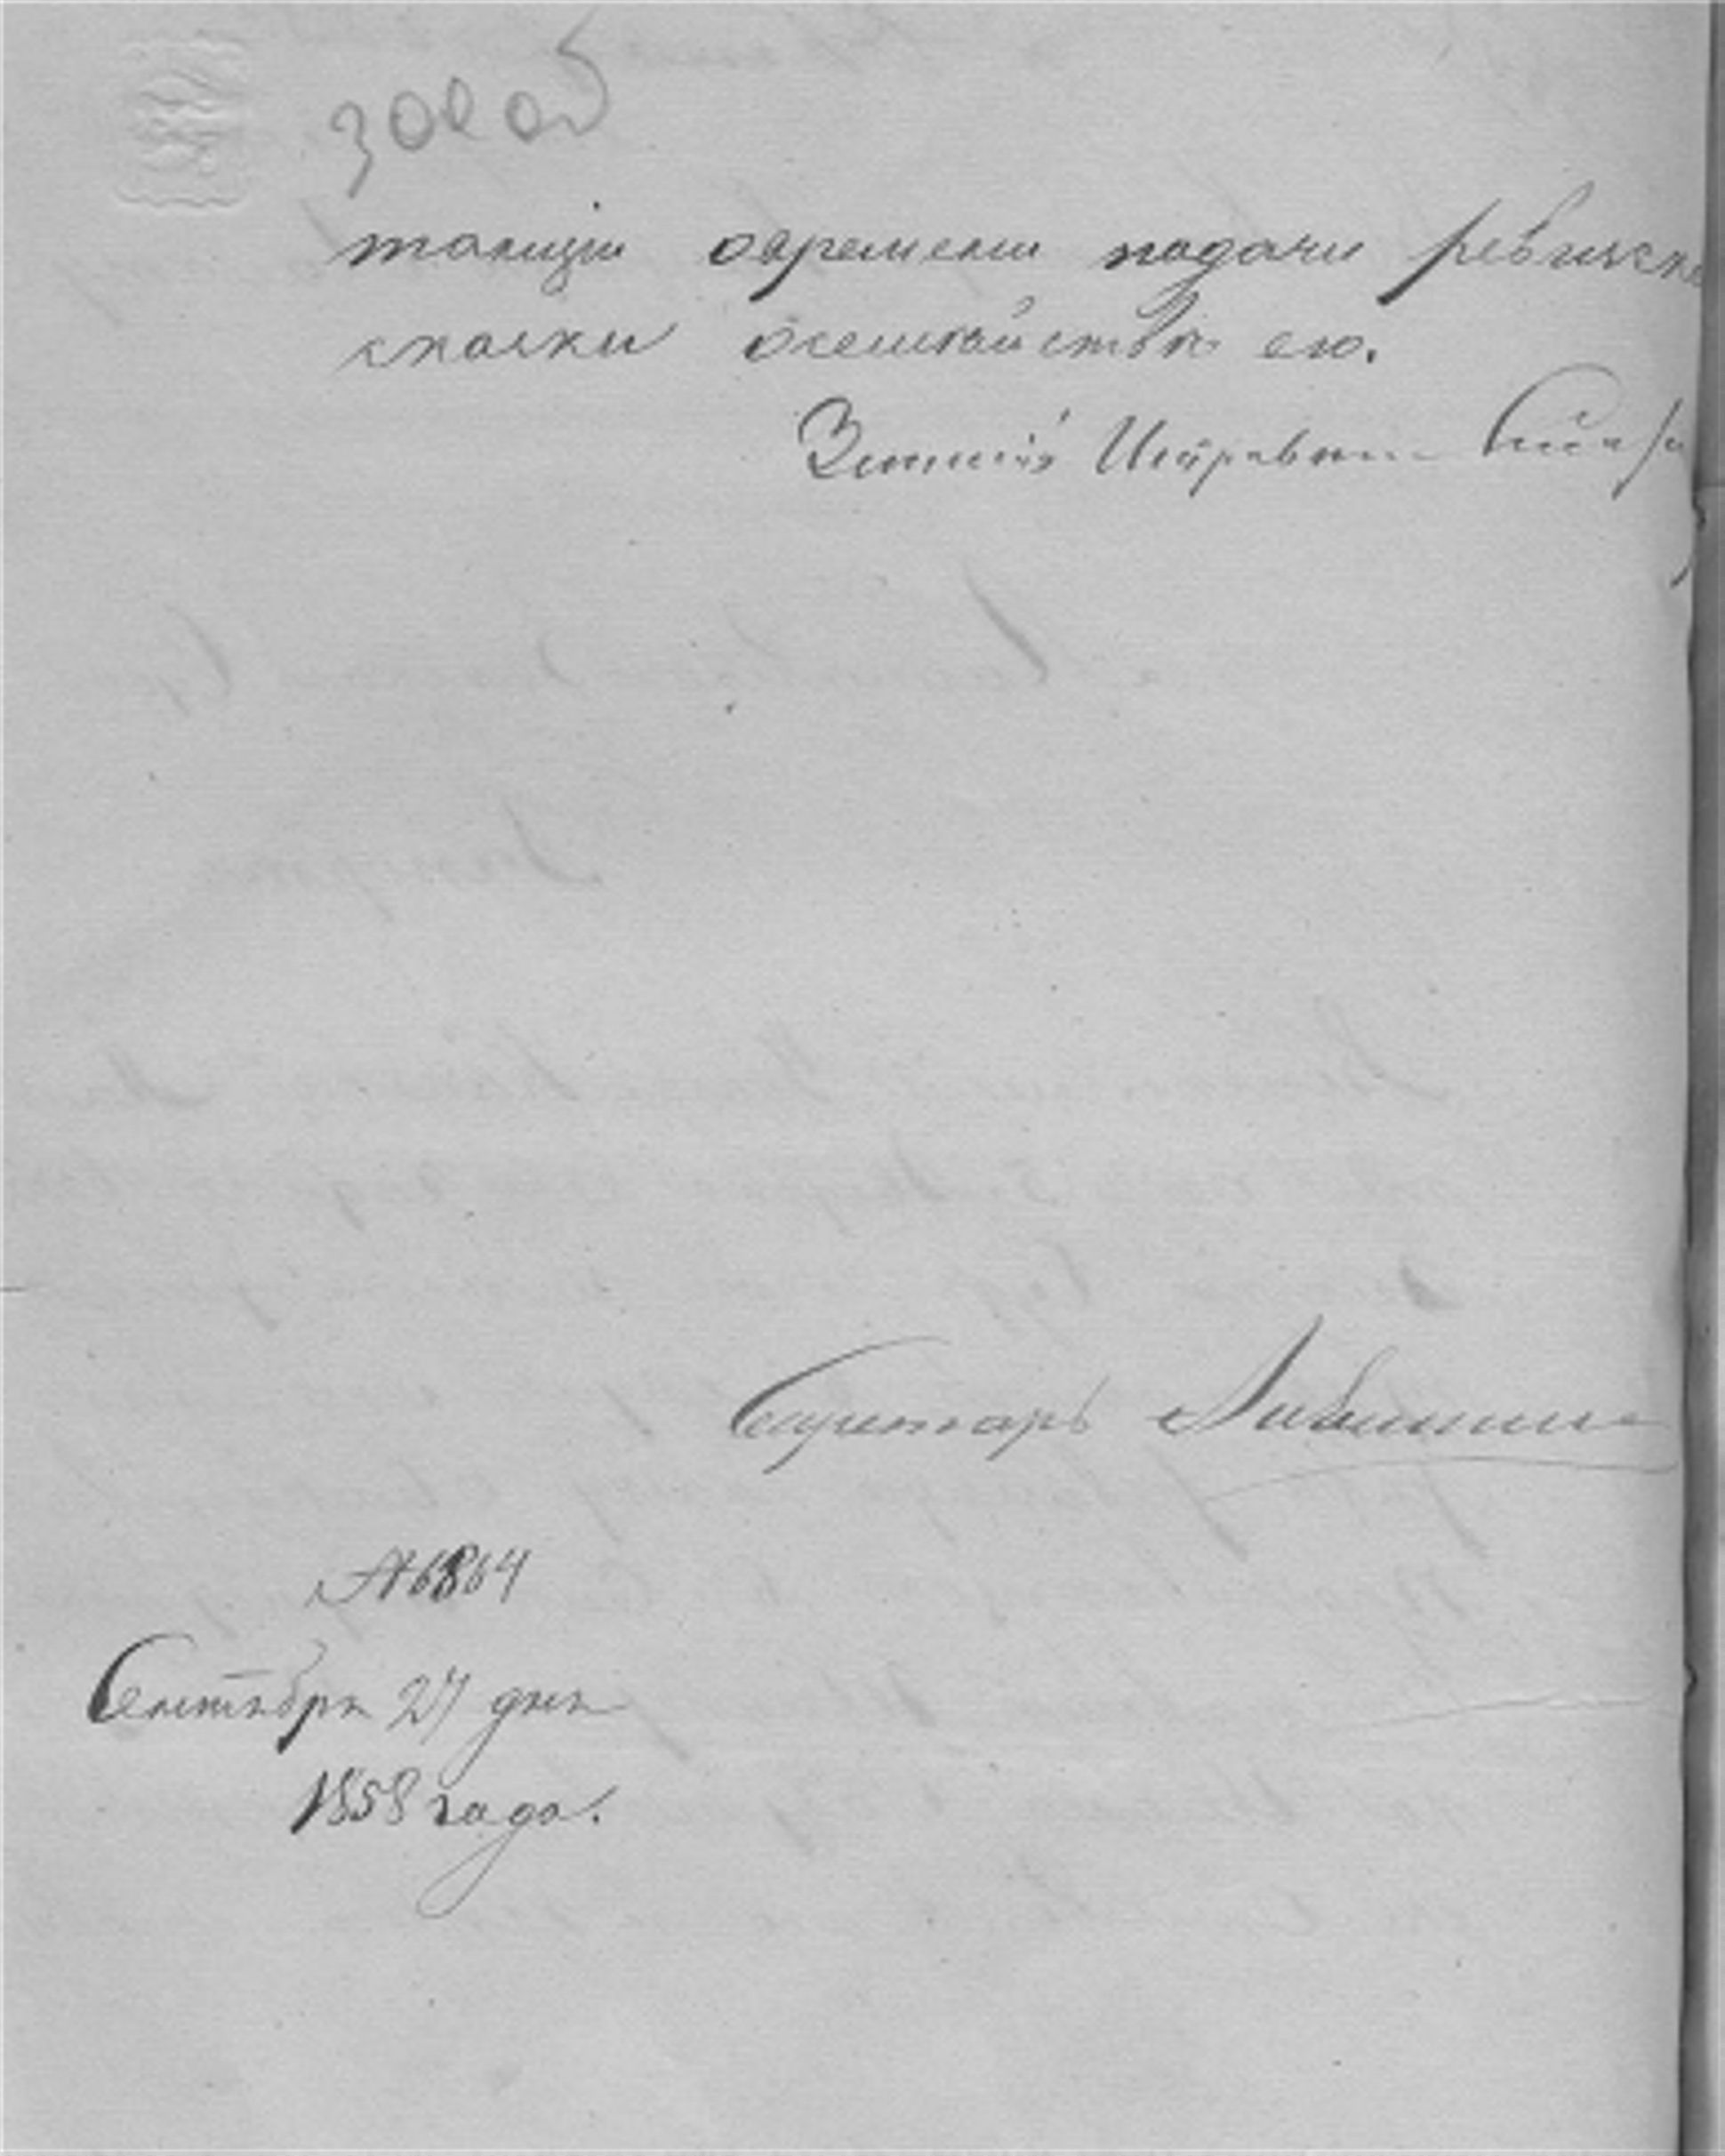 300 об
танции овремени подачи ревизско
скаски осемействе его.
Земский Исправник
Секретарь
№ 6864
Сентября 27 дня
1858 года.